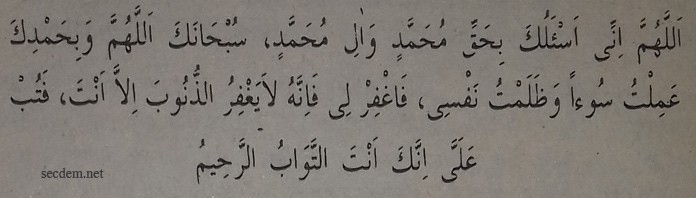 اَللَّهُمَّ اِنِّى اَسْئَلُكَ بِحَقِّ مُحَمَّدٍ وَاٰلِ مُحَمَّدٍ، سُبْحَانَكَ اَللَّهُمَّ وَبِحَمْدِكَ
عَمِلْتُ سُوءاً وَظَلَمْتُ نَفْسِى، فَاغْفِرْ لِى فَاِنَّهُ لاَيَغْفِرُ الذُّنُوبَ اِلاَّ اَنْتَ، فَتُبْ
عَلَىَّ اِنَّكَ اَنْتَ التَّوَابُ الرَّحِيمُ
secdem.net